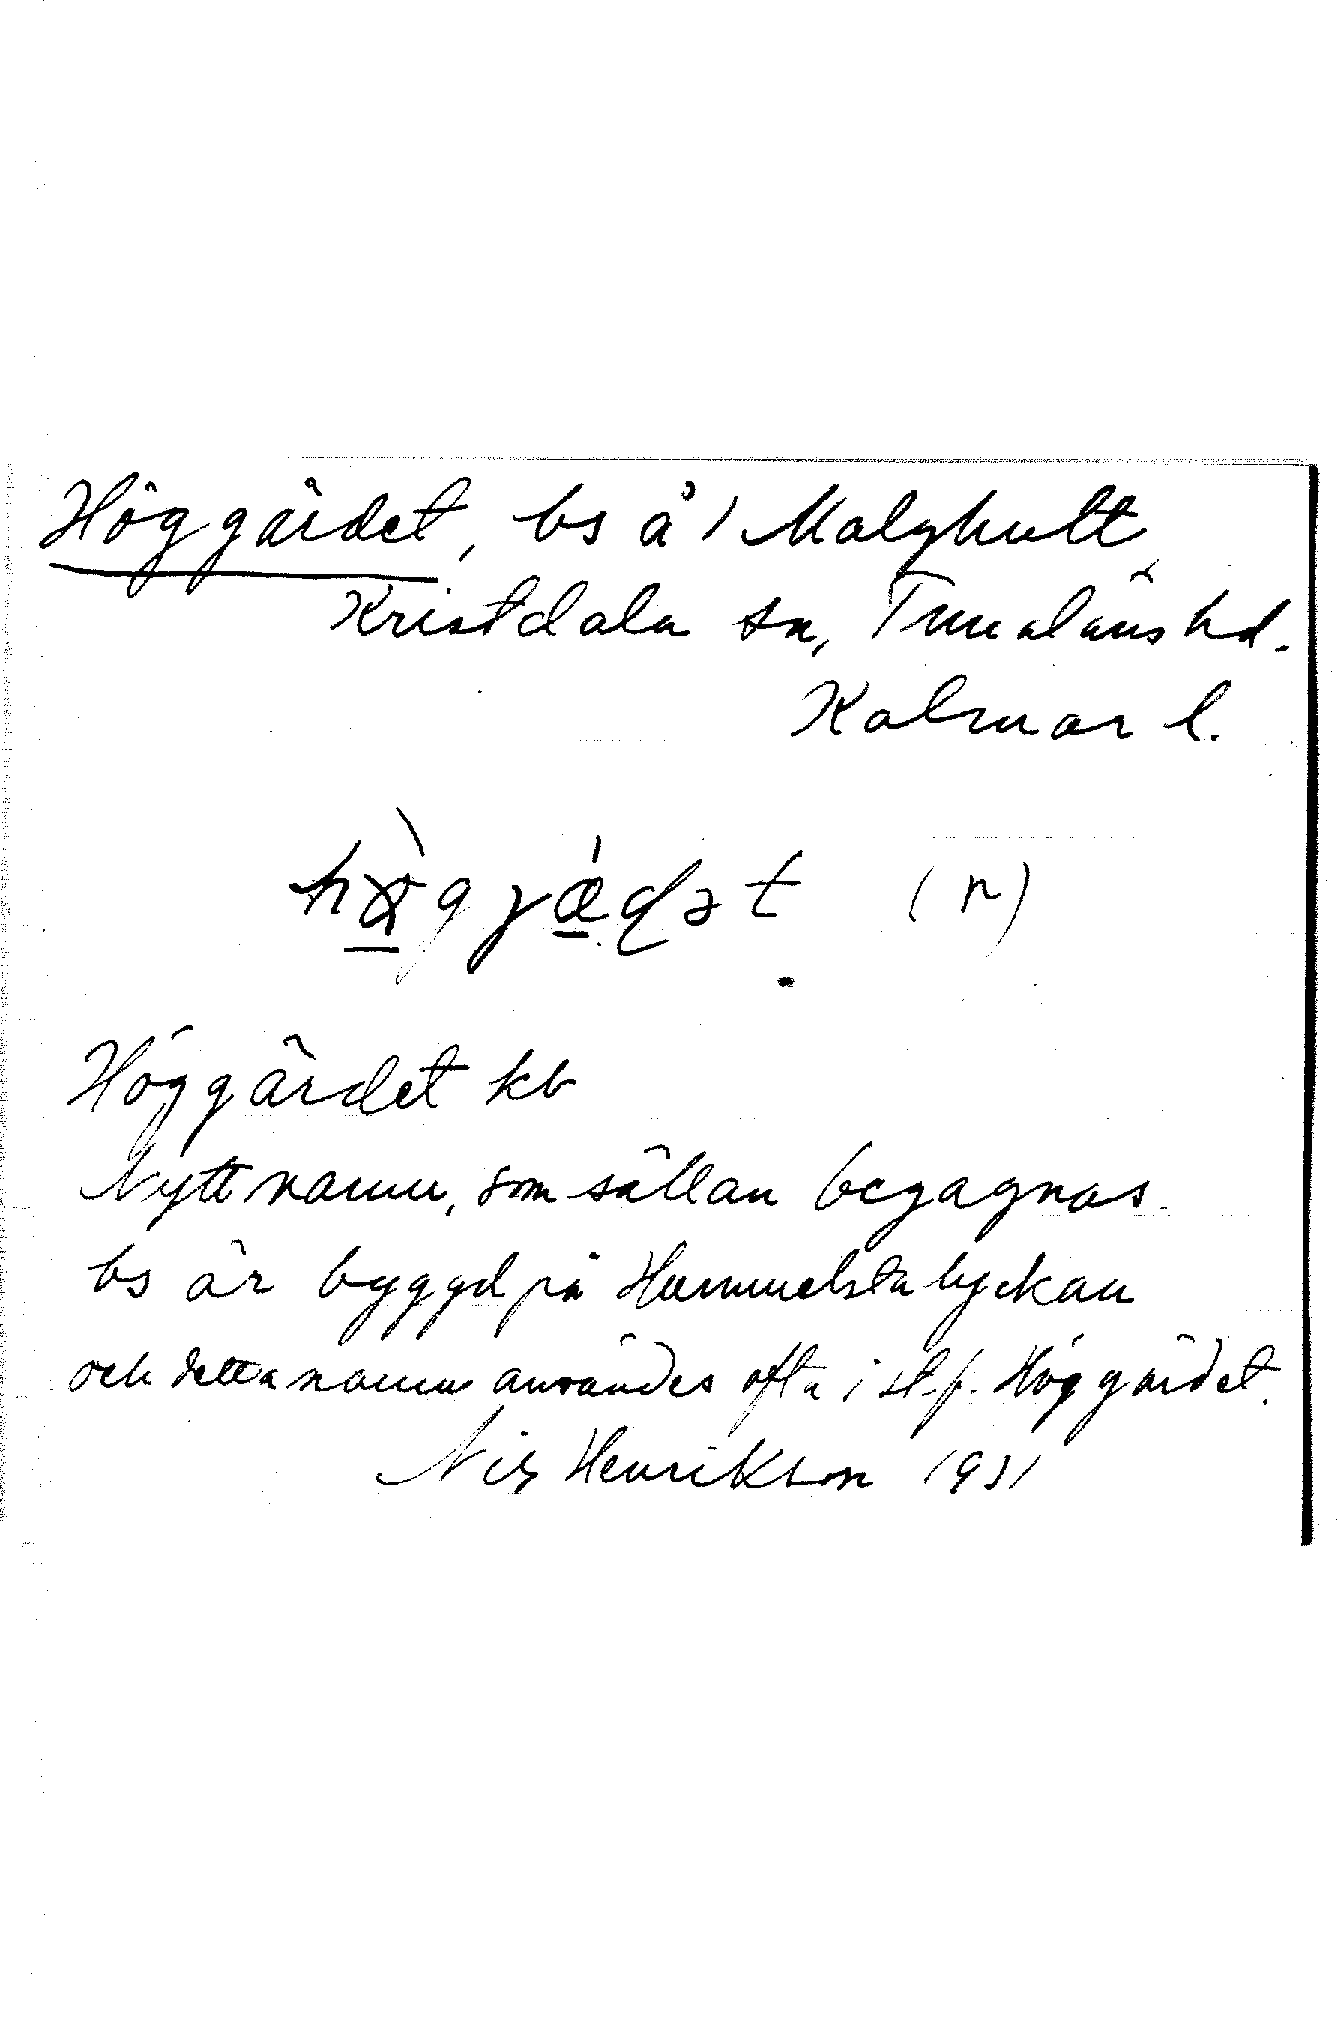 Höggärdet, bs å 1 Malghult
Kristdala sn, Tunaläns hd.
Kalmar l.
(n)
Höggärdet kb
Nytt namn, som sällan begagnas.
bs är byggd på Hummelstalyckan
och detta namn användes ofta i st.f. Höggärdet.
Nils Henrikson 1931